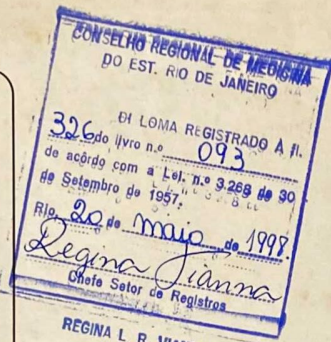 CONSELHO REGIONAL DE MEDICINA
DO EST. RIO DE JANEIRO
DI LOMA REGISTRADO À fl.
326 do livro n.º 093
de acôrdo com a Lei, n.º 3.268 de 30
de Setembro de 1957.
Rio, 20 de maio de 1998.
Regina Vianna
Chefe Setor de Registros
REGINA L. R.